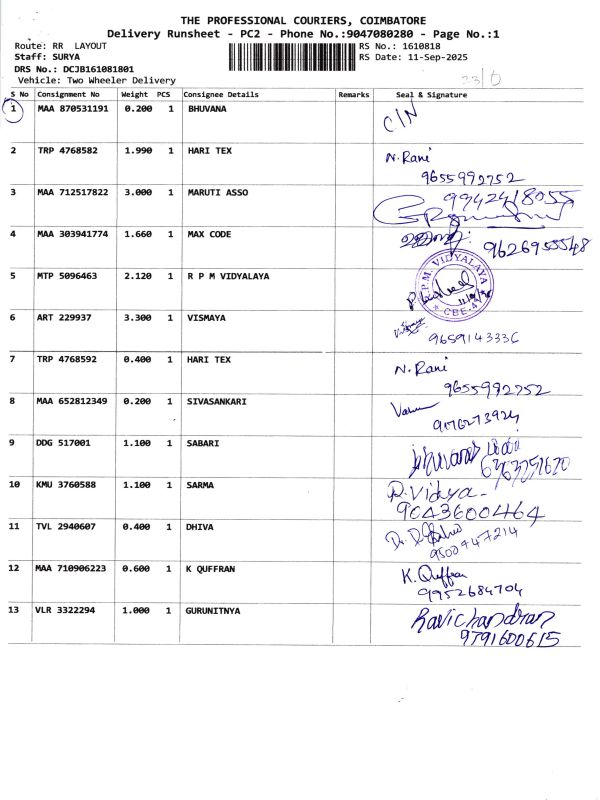 THE PROFESSIONAL COURIERS, COIMBATORE
Delivery Runsheet - PC2 - Phone No.:9047080280 - Page No.:1
Route: RR LAYOUT
RS No.: 1610818
Staff: SURYA
RS Date: 11-Sep-2025
DRS No.: DCJB161081801
Vehicle: Two Wheeler Delivery
23/0
S No Consignment No Weight PCS Consignee Details Remarks Seal & Signature
1 MAA 870531191 0.200 1 BHUVANA C/N
2 TRP 4768582 1.990 1 HARI TEX N. Rani
9655992752
3 MAA 712517822 3.000 1 MARUTI ASSO 9942418055
4 MAA 303941774 1.660 1 MAX CODE 9626955548
5 MTP 5096463 2.120 1 R P M VIDYALAYA R.P.M. VIDYALAYA
CBE-47
6 ART 229937 3.300 1 VISMAYA
9659143336
7 TRP 4768592 0.400 1 HARI TEX N. Rani
9655992752
8 MAA 652812349 0.200 1 SIVASANKARI
9176273924
9 DDG 517001 1.100 1 SABARI
6363251620
10 KMU 3760588 1.100 1 SARMA R. Vidya
9043600464
11 TVL 2940607 0.400 1 DHIVA
9500447214
12 MAA 710906223 0.600 1 K QUFFRAN K. Quffran
9952684704
13 VLR 3322294 1.000 1 GURUNITNYA Ravichandran
9791600615